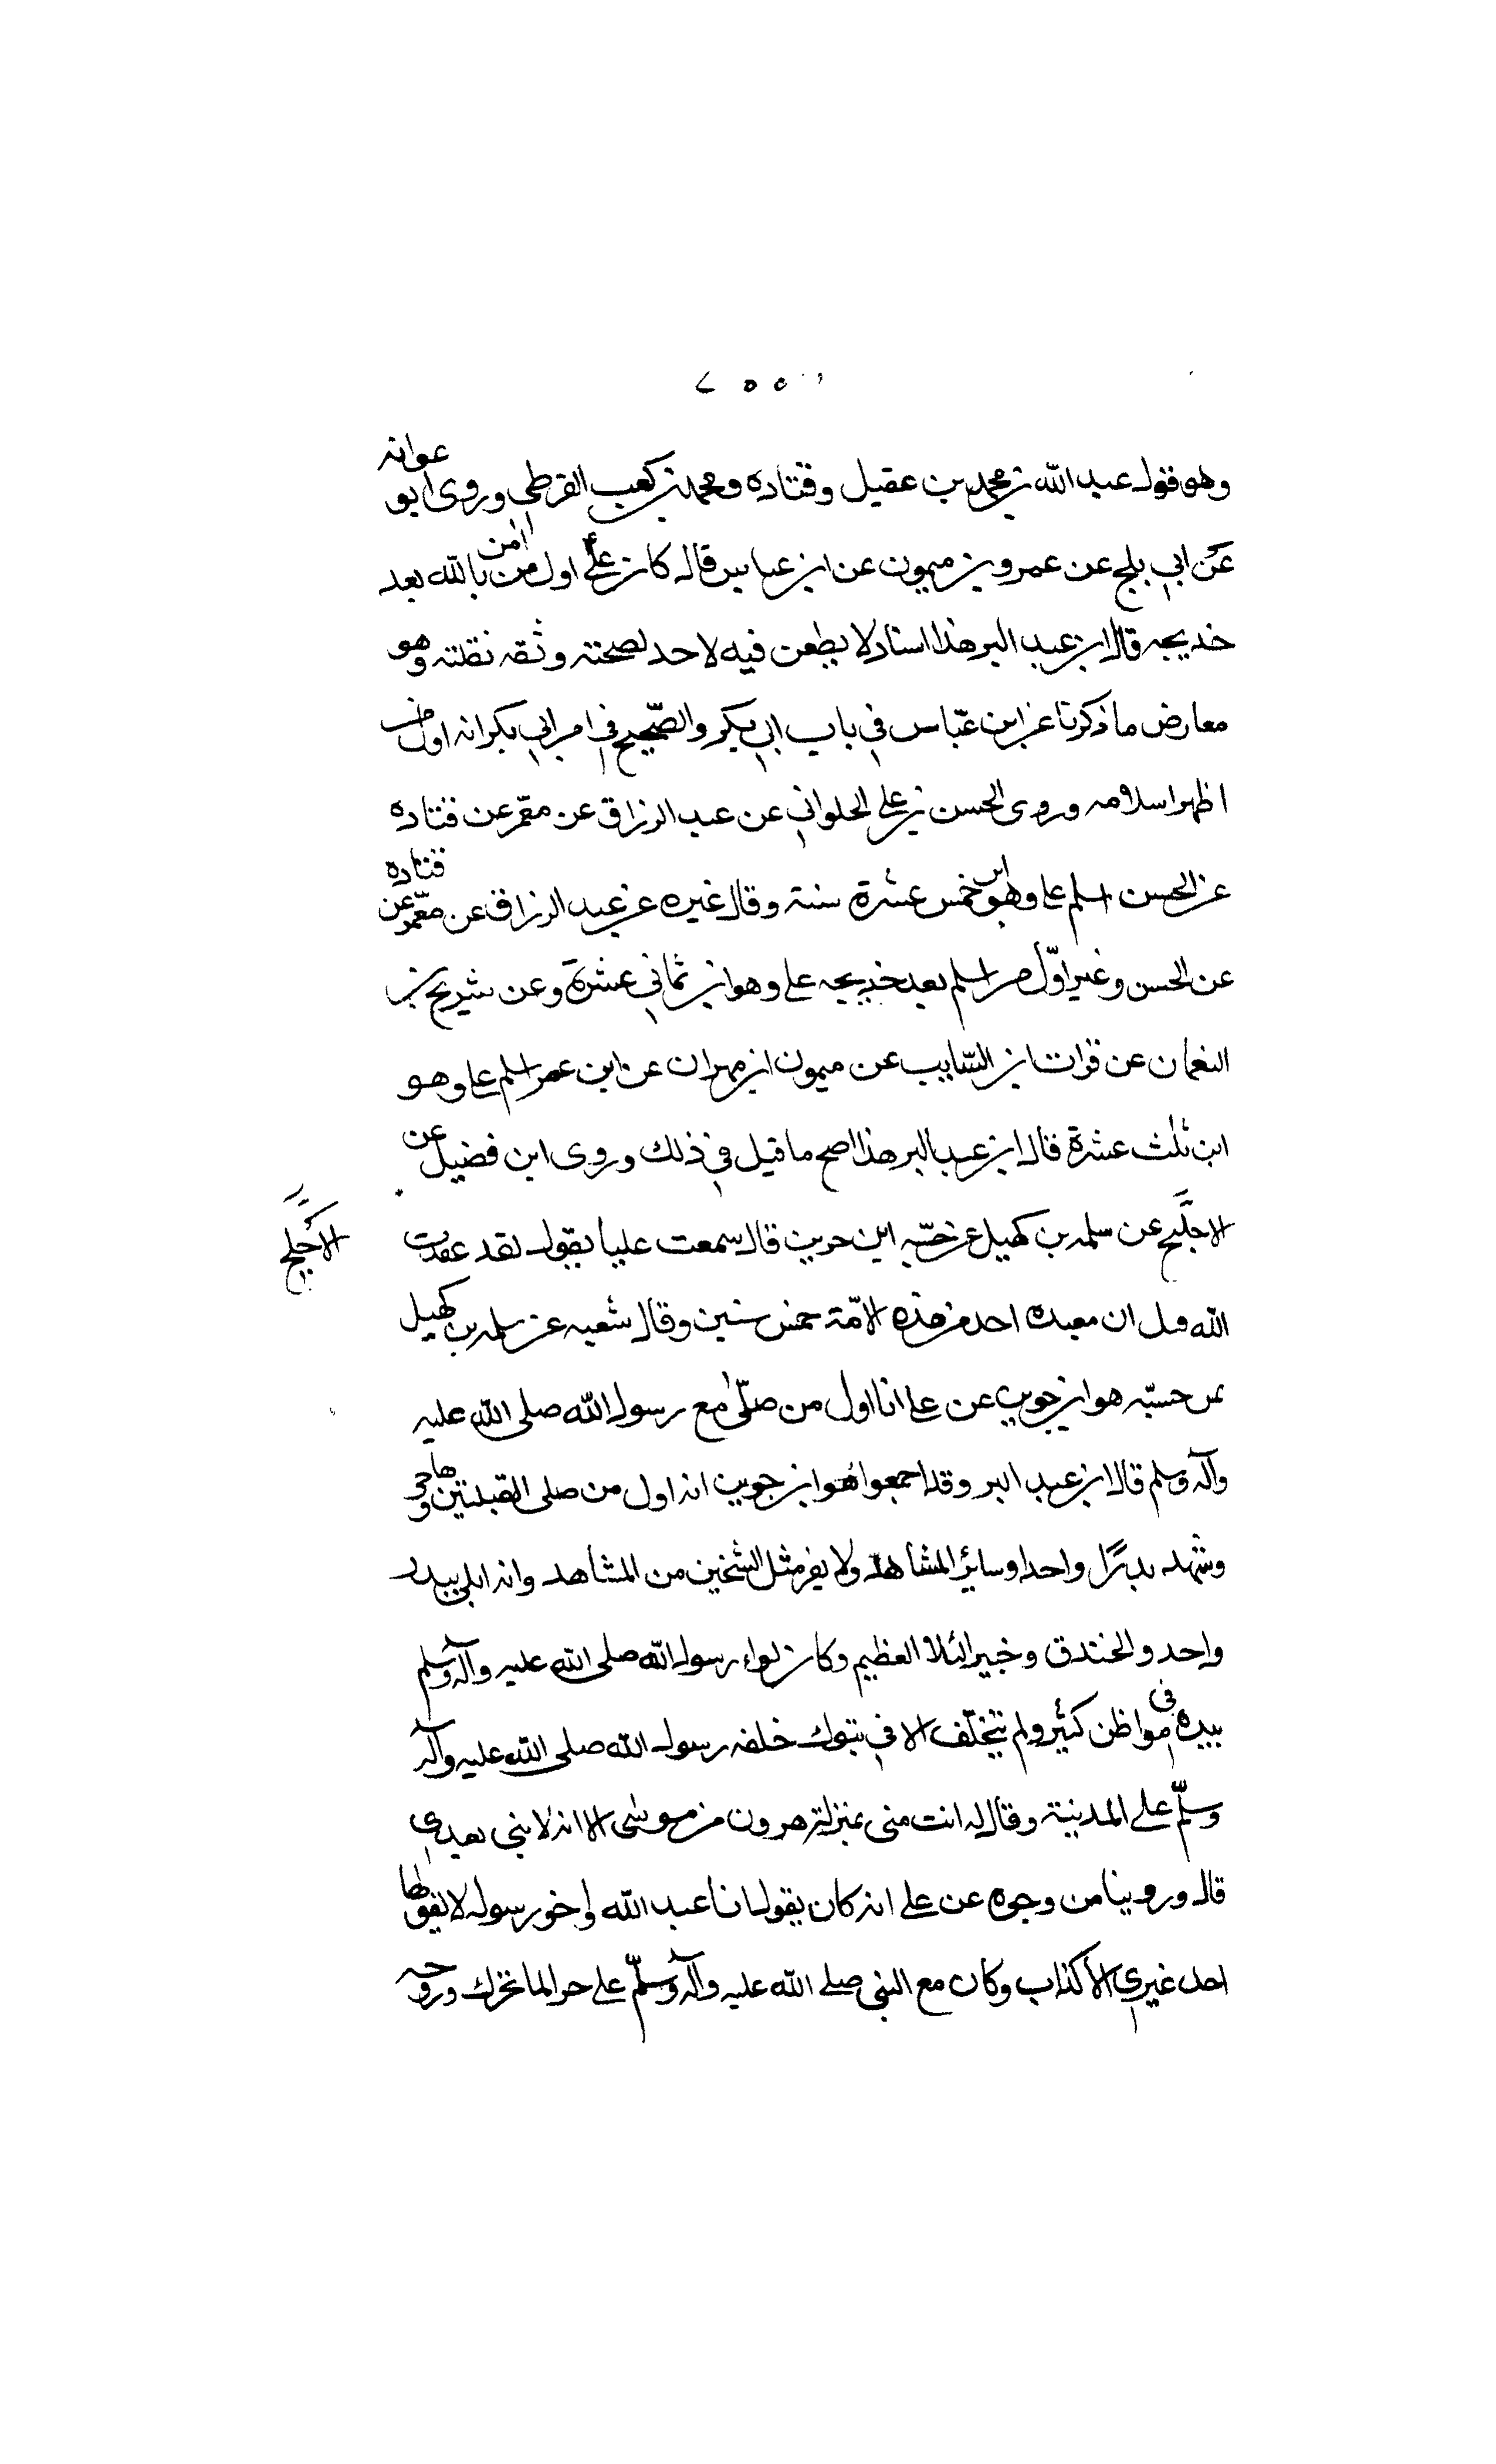 وهو قول عبد الله بن محمد بن عقيل وقتاده ومحمد بن كعب القرظي وروى ابو عوانه
عن ابي بلج عن عمرو بن ميمون عن ابن عباس قال كان علي اول من امن بالله بعد
خديجه قال ابن عبد البر هذا اسناد لا يطعن فيه لاحد لصحته وثقه نقلته وهو
معارض ما ذكرنا عن ابن عبّاس في باب ابي بكر والصّحيح في امر ابي بكر انه اول من
اظهر اسلامه وروى الحسن بن علي الحلواني عن عبد الرزاق عن معّمر عن قتاده
عن الحسن اسلم علي وهو ابن خمس عشرة سنة وقال غيره عن عبد الرزاق عن معّمر عن قتاده
عن الحسن وغيره اوّل من اسلم بعد خديجه علي وهو ابن ثماني عشرة وعن شريح بن
النعمان عن فرات بن السّايب عن ميمون ابن مهران عن ابن عمر اسلم علي وهو
ابن ثلث عشرة قال ابن عبد البر هذا اصح ما قيل في ذلك وروى ابن فضيل عن
الاجلَّح عن سلمه بن كهيل عن حبّه ابن جوين قال سمعت عليا يقول لقد عبدت
الاجلح
الله قبل ان يعبده احد من هذه الامّة خمس سنين وقال شعبه عن سلمه بن كهيل
عن حبّه هو ابن جوين عن علي انا اول من صلّى مع رسول الله صلى الله عليه
وآله وسلم قال ابن عبد البر وقد اجمعوا هو ابن جوين انه اول من صلى القبلتين وهاجر
وشهد بدرًا واحدا وساير المشاهد ولا يفر مثل الشخين من المشاهد وانه ابلي ببدر
واحد والخندق وخيبر البلا العظيم وكان لواء رسول الله صلى الله عليه وآله وسلم
بيده في مواطن كثير ولم يتخلّف الا في تبوك خلفه رسول الله صلى الله عليه وآله
وسلّم على المدينة وقال له انت مني بمنزلة هرون من موسى الا انه لا نبي بعدي
قال وروينا من وجوه عن علي انه كان يقول انا عبد الله واخو رسوله لا يقولها
احد غيري الا كذاب وكان مع النبي صلى الله عليه وآله وسلّم على حرا لما تحرك وروحه